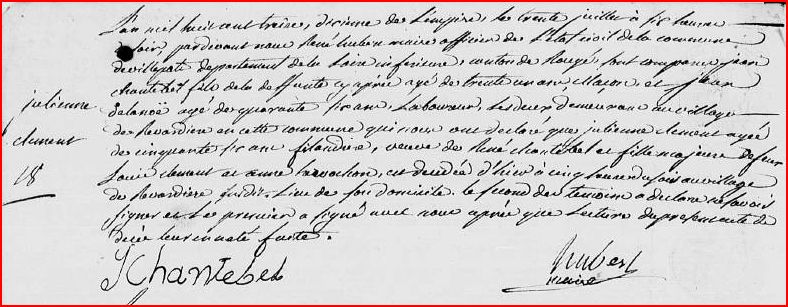 L'an mil huit cent treize, dixieme de L'empire, le trente juillet à six heures
du soir, pardevant nous René hubert maire officier de L'état civil de la commune
de villepote departement de la Loire inferieure canton de Rougé, sont comparus jean
chantebel fils de la deffunte cy après agé de trente un ans, Macon, et jean
Delanoë agé de quarante six ans Laboureur, Lesdeux demeurant au village
de Revardiere en cette commune qui nous ont declaré que julienne clement agée
de cinquante six ans filandiere, veuve de René Chantebel et fille majeure de feu
Louis clement et anne, est decedée d'hier à cinq heures du soir au village
de Revardiere susdit, Lieu de son domicile. le second des temoins a declaré ne savoir
signer et Le premier a signé avec nous après que Lecture du present acte de
décès leur en a été faite.
julienne
clement
18
J Chantebel
hubert
maire